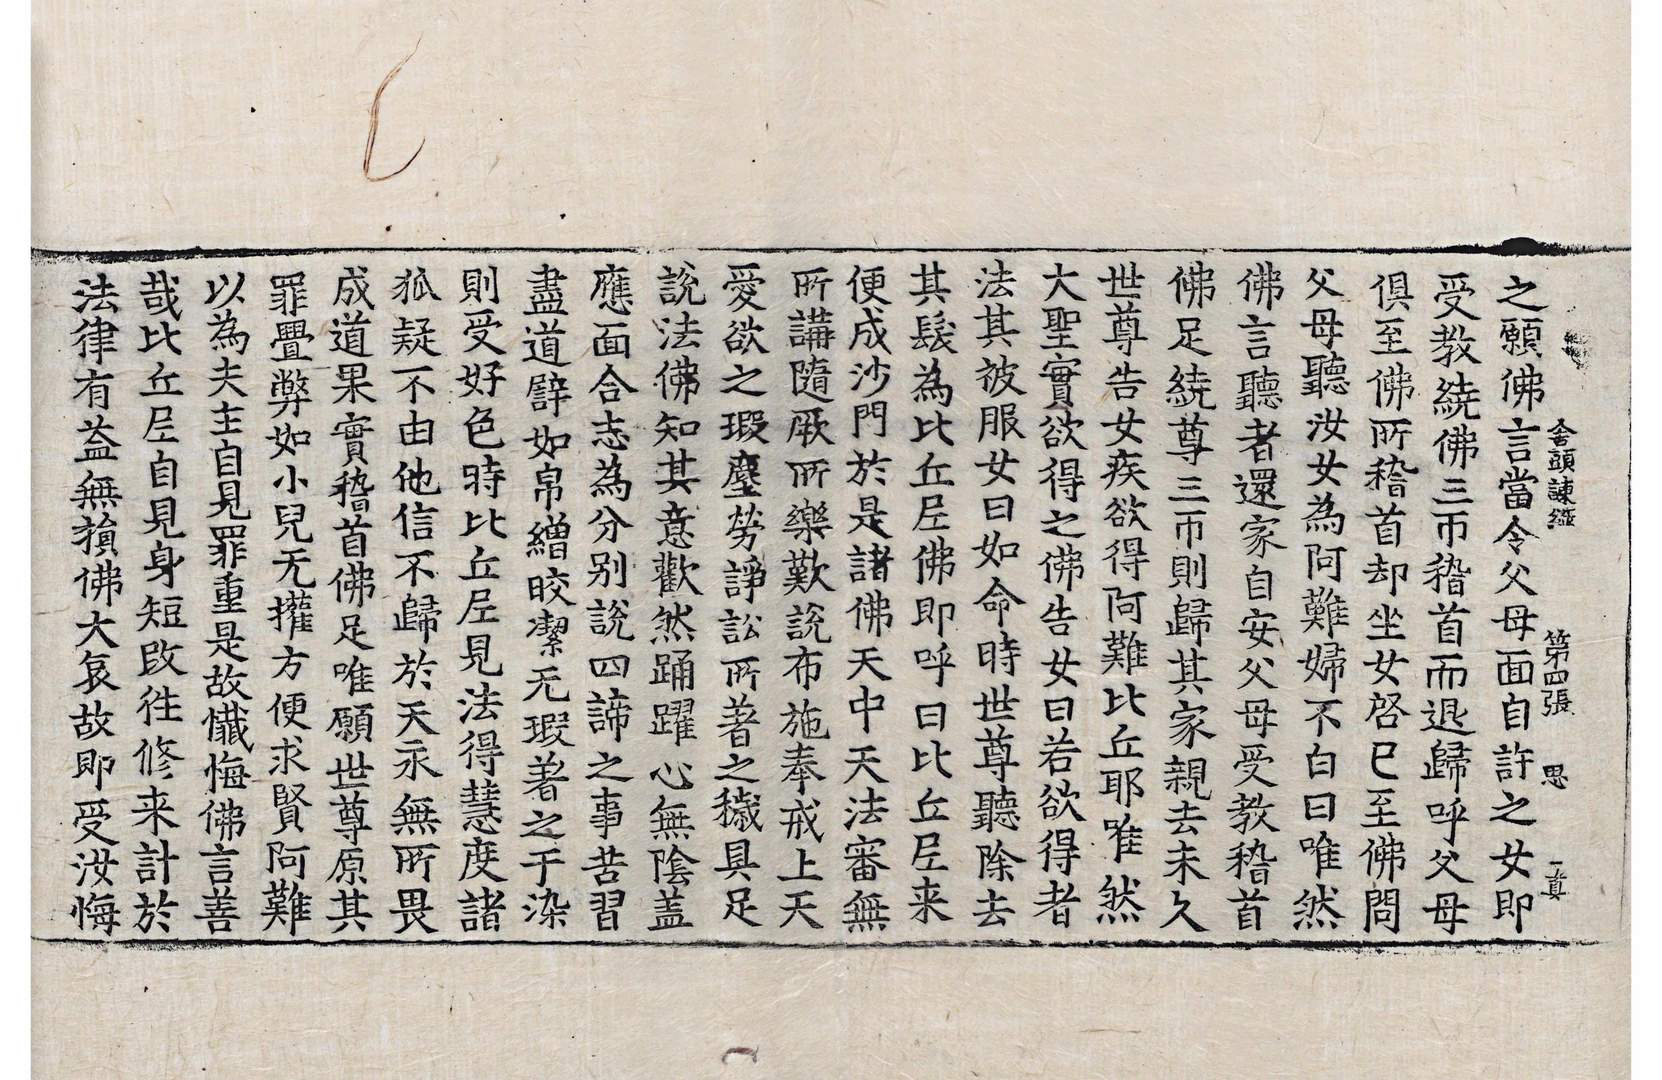 舍頭諫經 第四張 思 真
之願佛言當令父母面自許之女即
受教繞佛三帀稽首而退歸呼父母
俱至佛所稽首却坐女啓巳至佛問
父母聽汝女為阿難婦不白曰唯然
佛言聽者還家自安父母受教稽首
佛足繞尊三帀則歸其家親去未久
世尊告女疾欲得阿難比丘耶唯然
大聖實欲得之佛告女曰若欲得者
法其被服女曰如命時世尊聽除去
其髮為比丘尼佛即呼曰比丘尼来
便成沙門於是諸佛天中天法審無
所講隨厥所樂歎說布施奉戒上天
愛欲之瑕塵勞諍訟所著之穢具足
說法佛知其意歡然踊躍心無陰蓋
應面合志為分別說四諦之事苦習
盡道譬如帛繒晈潔无瑕著之于染
則受好色時比丘尼見法得慧度諸
狐疑不由他信不歸於天永無所畏
成道果實稽首佛足唯願世尊原其
罪疊弊如小兒无攉方便求賢阿難
以為夫主自見罪重是故懺悔佛言善
哉比丘尼自見身短改往修来計於
法律有益無損佛大哀故即受汝悔